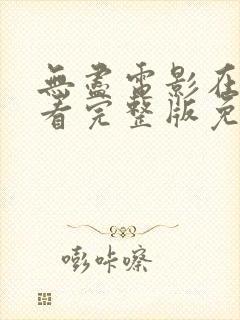 無盡電影在
看完整版免
嘭咔嚓